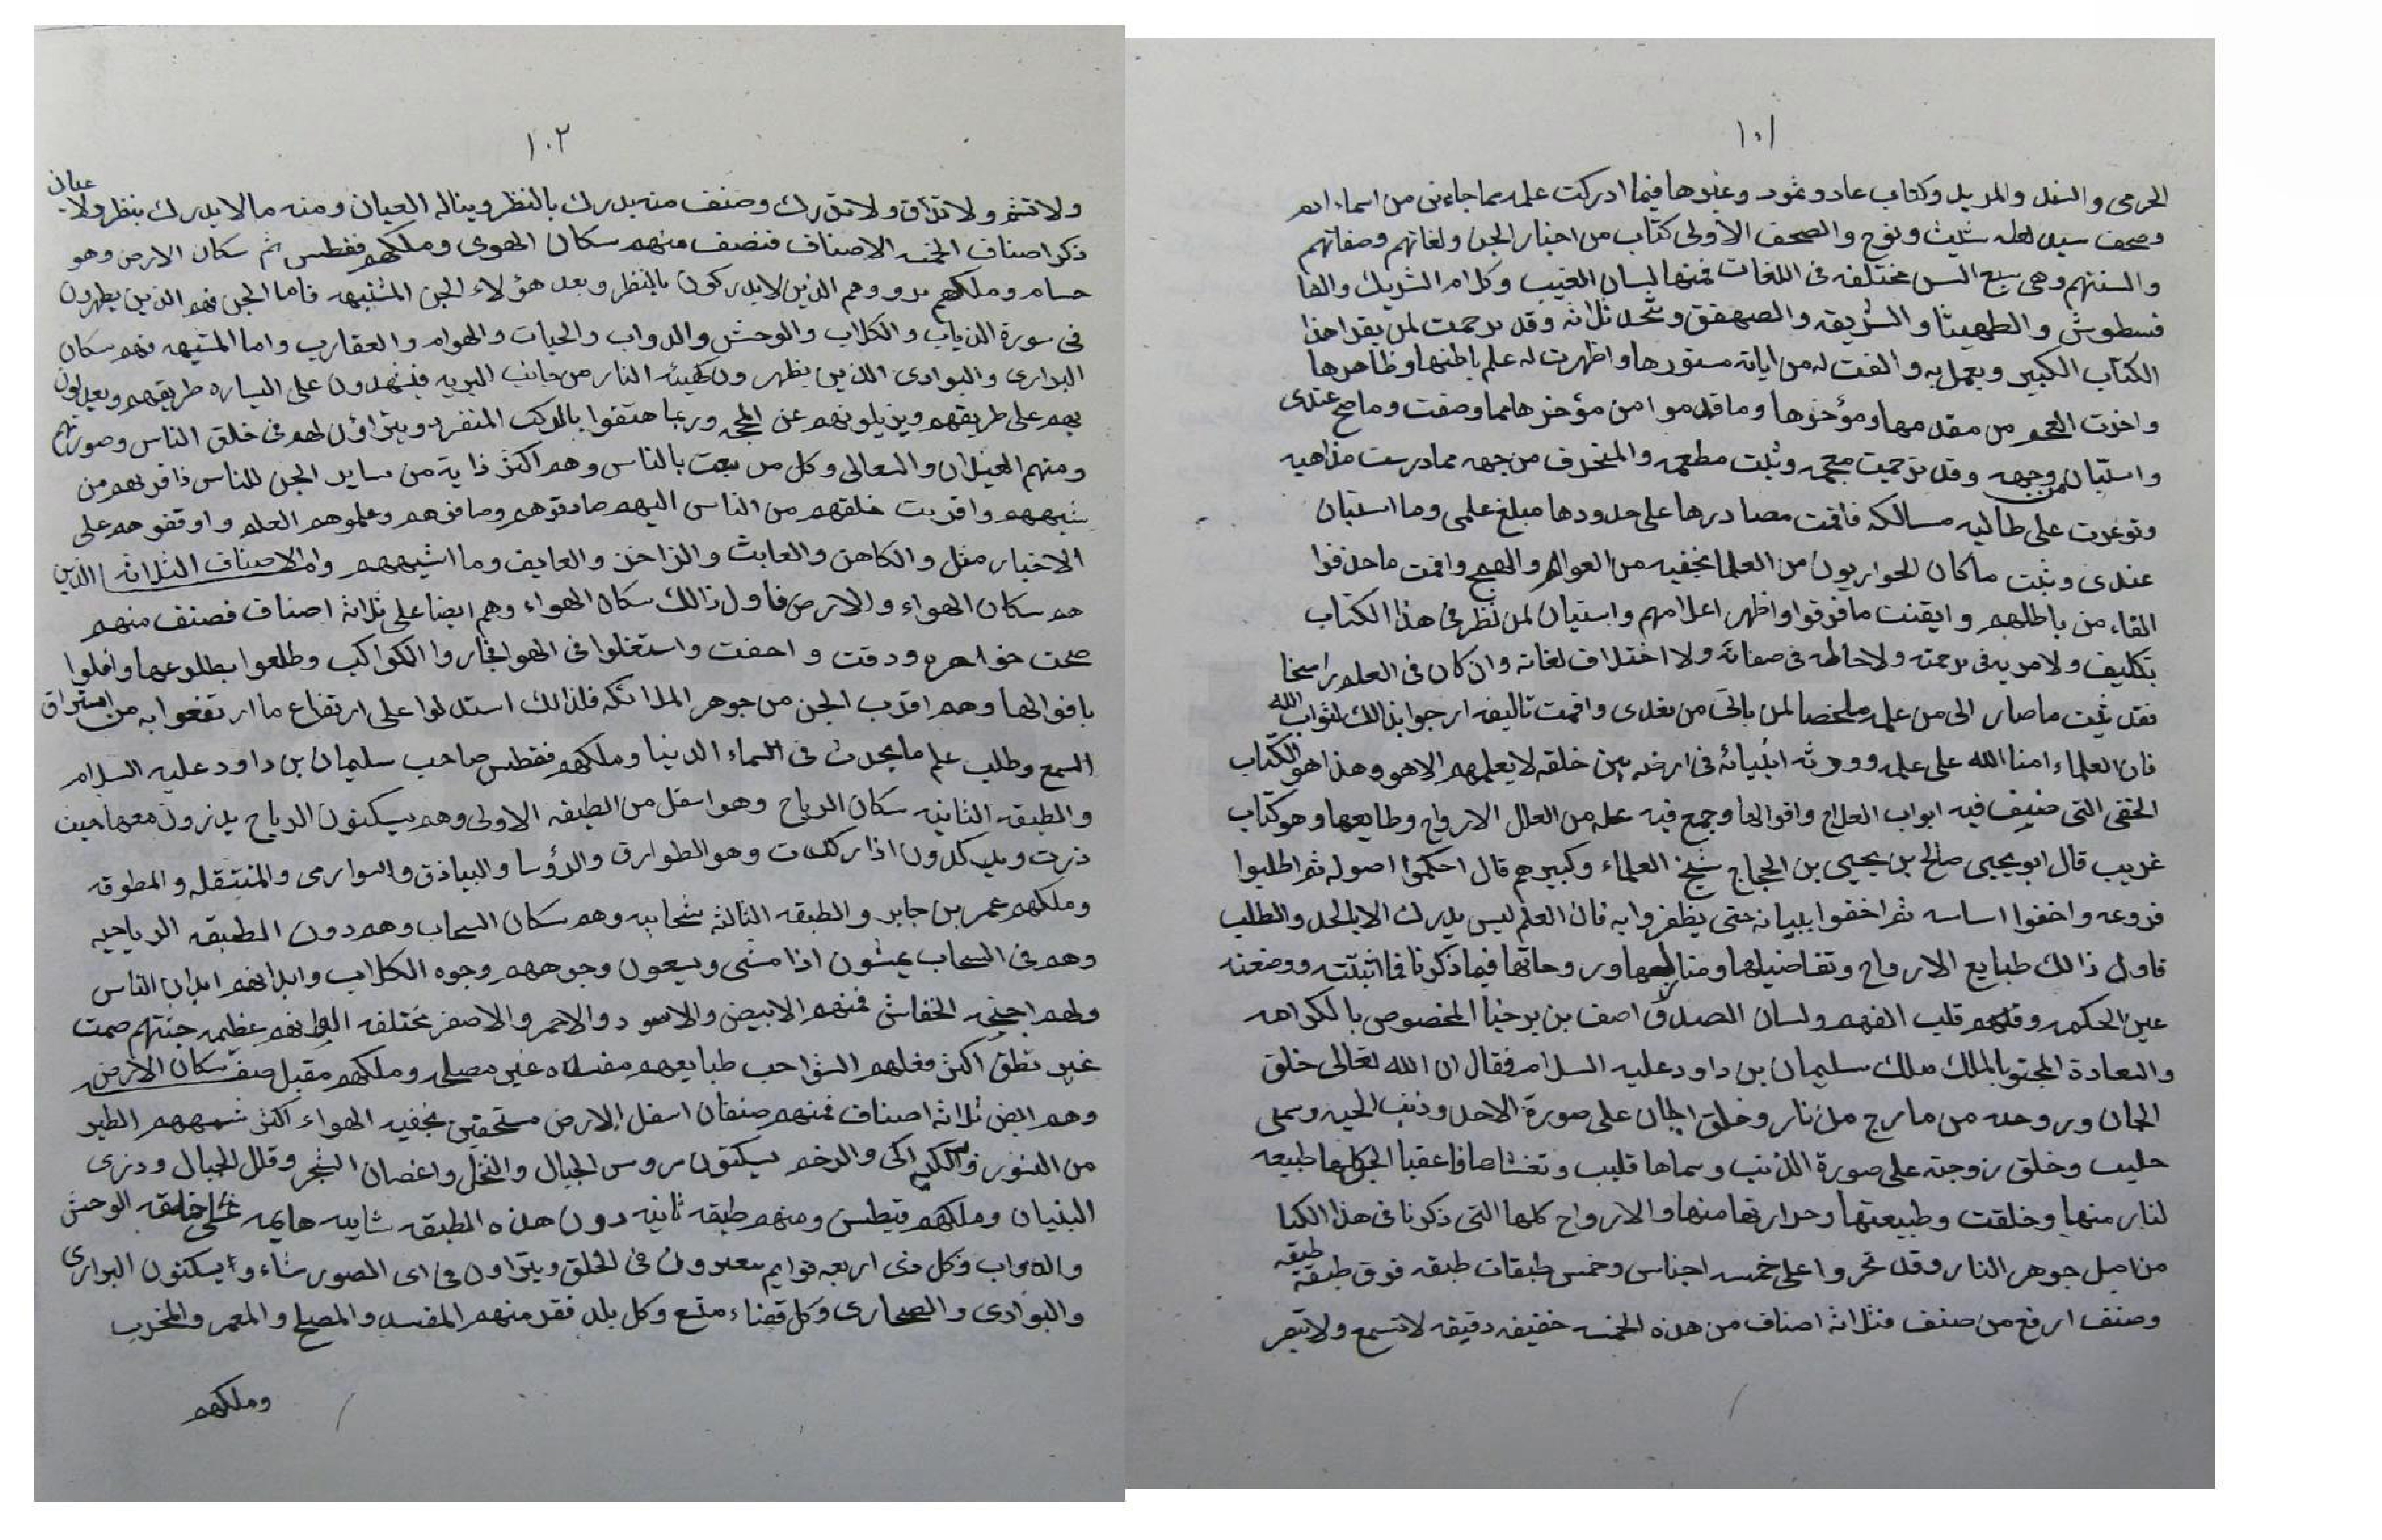 ١٠١
الحرمى والسند والمديد وكتاب عاد وثمود وغيرها فيما ادركت علمه مما جاءنى من اسماء ادم
وصحف شيث ونوح والصحف الاولى كتاب من اخبار الجن ولغاتهم وصفاتهم
والسنتهم وهى سبع السن مختلفه فى اللغات فمنها لسان الغيب وكلام الشريك والفا
فسطوش والطهيثا والصهفق وقد ترجمت لمن يقراهذا
الكتاب الكبير ويعمل به والفت له من اياته مستورها واظهرت له علم باطنها وظاهرها
واخذت العجم من مقدمها ومؤخرها وما قدموا من مؤخرها مما وصفت وما صح عندى
واستبان من وجهه وقد ترجمت معجمه وثبت مطعمه والمنحرف من جهه مما درست مذاهبه
وتوعرت على طالبه مسالكه فاقمت مصادرها على حدودها مبلغ علمى وما استبان
عندى وثبت ما كان الحواريون من العلما تخفيه من العوام والهمج واقمت ما حذفوا
القاء من باطلهم وايقنت ما فرقوا واظهر اعلامهم واستبان لمن نظر فى هذا الكتاب
تكليف ولا مريه فى ترجمته ولا حاطه فى صفاته ولا اختلاف لغاته وان كان فى العلم راسخا
فقد ثبت ما صار الى من علمه ملخصا لمن ياتى من بعدى واقمت تاليفه ارجوا بذالك ثواب الله
فان العلماء امنا الله على علمه وورثه انبيائه فى ارضه بين خلقه لا يعلمهم الا هو وهذا هو الكتاب
الخفى التى صنيف فيه ابواب العلاج واقوالها وجمع فيه علم من العلل الارواح وطايعها وهو كتاب
غريب قال ابو يحيى صالح بن يحيى بن الحجاج شيخ العلماء وكبيرهم قال احكموا اصوله ثم اطلبوا
فروعه واخفوا اساسه ثم اخفوا ببيانه حتى يظفروا به فان العلم ليس يدرك الا بالجد والطلب
فاول ذالك طبايع الارواح وتفاصيلها ومنابعها وروحاتها فيما ذكرنا فما اثبتته ووضعته
عين الحكمه وقلهم قلب الفهم ولسان الصدق اصف بن برخيا المخصوص بالكرامه
والسعادة المجتو بالملك ملك سليمان بن داود عليه السلام فقال ان الله تعالى خلق
الجان وروحه من مارج من نار وخلق الجان على صورة الاحد وذنب الحيه وسمى
حليب وخلق زوجته على صورة الذئب وسماها قليب وتغشاها فاعقبا الجن كلها طبيعه
لنار منها وخلقت وطبيعتها وحرارتها منها والارواح كلها التى ذكرنا فى هذا الكتا
من اصل جوهر النار وقد تجزوا على خمسه اجناس وخمس طبقات طبقه فوق طبقة طبقه
وصنف ارفع من صنف فثلاثه اصناف من هذه الخمسه خفيفه دقيقه لا تسمع ولا تبصر
١٠٢
ولا تشم ولا تذاق ولا تدرك وصنف منه يدرك بالنظر ويناله العيان ومنه ما لا يدرك بنظر ولا عيان
ذكر اصناف الخمسه الاصناف فنصف منهم سكان الهوى وملكهم فقطس ثم سكان الارض وهو
حسام وملكهم وهم الذين لا يدركون بالنظر وبعد هؤلاء الجن المشبهه فاما الجن فهم الذين يظهرون
فى سورة الذياب والكلاب والوحش والدواب والحيات والهوام والعقارب واما المشبهه فهم سكان
البرارى والبوادى الذين يظهرون كهيئه النار من جانب البريه فينهدون على السياره طريقهم ويعدلون
بهم على طريقهم ويزيلونهم عن المحجه وربما هتفوا بالركب المنفرد ويتراؤن لهم فى خلق الناس وصورتهم
ومنهم الغيلان والسعالى وكل من يعبث بالناس وهم اكثر ذاية من ساير الجن للناس ذاقربهم من
شبههم واقربت خلقهم من الناس اليهم صادقوهم وصافوهم وعلموهم العلم واوقفوهم على
الاخبار مثل والكاهن والعابث والزاخر والعايف وما اشبههم واما الاصناف الثلاثه الذين
هم سكان الهواء والارض فاول ذالك سكان الهواء وهم ايضا على ثلاثه اصناف فصنف منهم
صحت جواهرهم ودقت واحفت واستعلوا فى الهوا فجاروا الكواكب وطلعوا بطلوعها وافلوا
بافوالها وهم اقرب الجن من جوهر الملائكه فلذالك استدلوا على ارتفاع ما ارتفعوا به من استراق
السمع وطلب علم ما يحدث فى السماء الدنيا وملكهم فقطس صاحب سليمان بن داود عليه السلام
والطبقه الثانيه سكان الرياح وهو اسفل من الطبقه الاولى وهم يسكنون الرياح يذرون معها حيث
ذرت ويركدون اذا ركدت وهو الطوارق والرؤسا والبياذق والسوارمى والمنتقله والمطوقه
وملكهم عمر بن جابر والطبقه الثالثه سحابيه وهم سكان السحاب وهم دون الطبقه الرياحيه
وهم فى السحاب يمشون اذا مشى ويسعون وجوههم وجوه الكلاب وابدانهم ابدان الناس
ولهم اجنحه الخفاش فمنهم الابيض والاسود والاحمر والاصفر مختلفه الوانهم عظيمه جنتهم صمت
غير نطق اكثر فعلهم الشواحب طبايعهم مفسده غير مصلحه وملكهم مقبل صفه سكان الارض
وهم ايض ثلاثه اصناف فمنهم صنفان اسفل الارض مستحقين بخفيه الهواء اكثر شبههم الطير
من النسور والكراكى والرخم يسكنون روس الجبال والنخل واغصان الشجر وقلل الجبال وذرى
البنيان وملكهم قيطس ومنهم طبقه ثانيه دون هذه الطبقه شابيه هايمه على خلقه الوحش
والدواب وكل ذى اربعه قوايم معدودن فى الخلق ويتراون فى اى الصور شاء وا يسكنون البرارى
والبوادى والصحارى وكل قضاء متسع وكل بلد فقر منهم المفسد والمصلح والمعمر والمخرب
وملكهم